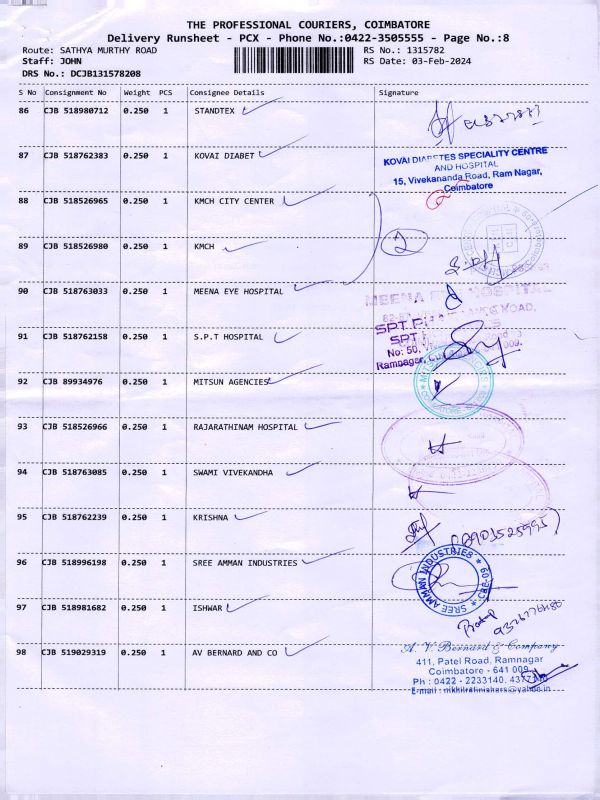 THE PROFESSIONAL COURIERS, COIMBATORE
Delivery Runsheet - PCX - Phone No.:0422-3505555 - Page No.:8
Route: SATHYA MURTHY ROAD RS No.: 1315782
Staff: JOHN RS Date: 03-Feb-2024
DRS No.: DCJB131578208
S No Consignment No Weight PCS Consignee Details Signature
86 CJB 518980712 0.250 1 STANDTEX
87 CJB 518762383 0.250 1 KOVAI DIABET
KOVAI DIABETES SPECIALITY CENTRE
AND HOSPITAL
15, Vivekananda Road, Ram Nagar,
Coimbatore
88 CJB 518526965 0.250 1 KMCH CITY CENTER
89 CJB 518526980 0.250 1 KMCH
2
90 CJB 518763033 0.250 1 MEENA EYE HOSPITAL
MEENA EYE HOSPITAL
ROAD,
SPT
91 CJB 518762158 0.250 1 S.P.T HOSPITAL
SPT
No: 50,
Ramnagar,
92 CJB 89934976 0.250 1 MITSUN AGENCIES
93 CJB 518526966 0.250 1 RAJARATHINAM HOSPITAL
94 CJB 518763085 0.250 1 SWAMI VIVEKANDHA
95 CJB 518762239 0.250 1 KRISHNA
96 CJB 518996198 0.250 1 SREE AMMAN INDUSTRIES
SREE AMMAN INDUSTRIES
97 CJB 518981682 0.250 1 ISHWAR
98 CJB 519029319 0.250 1 AV BERNARD AND CO
A. V. Bernard & Company
411, Patel Road, Ramnagar
Coimbatore - 641 009.
Ph : 0422 - 2233140,
E-mail : nikhilrefinishers@yahoo.in